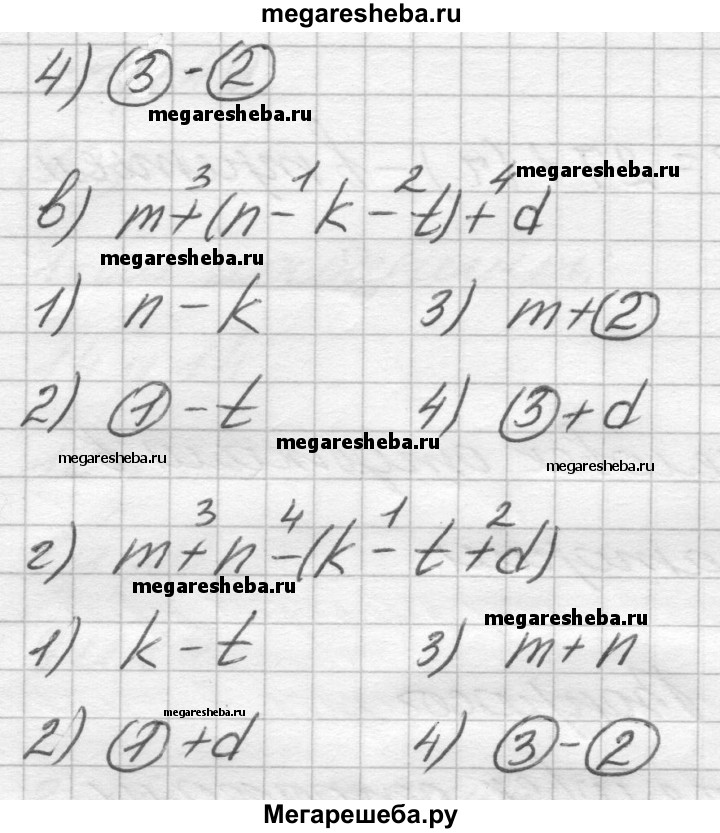 megaresheba.ru
4) ③ - ②
megaresheba.ru
3 1 2 4 megaresheba.ru
в) m + (n - k - t) + d
megaresheba.ru
1) n - k 3) m + ②
2) ① - t 4) ③ + d
megaresheba.ru
megaresheba.ru megaresheba.ru
3 4 1 2
г) m + n - (k - t + d)
megaresheba.ru
megaresheba.ru
1) k - t 3) m + n
megaresheba.ru
2) ① + d 4) ③ - ②
Мегарешеба.ру